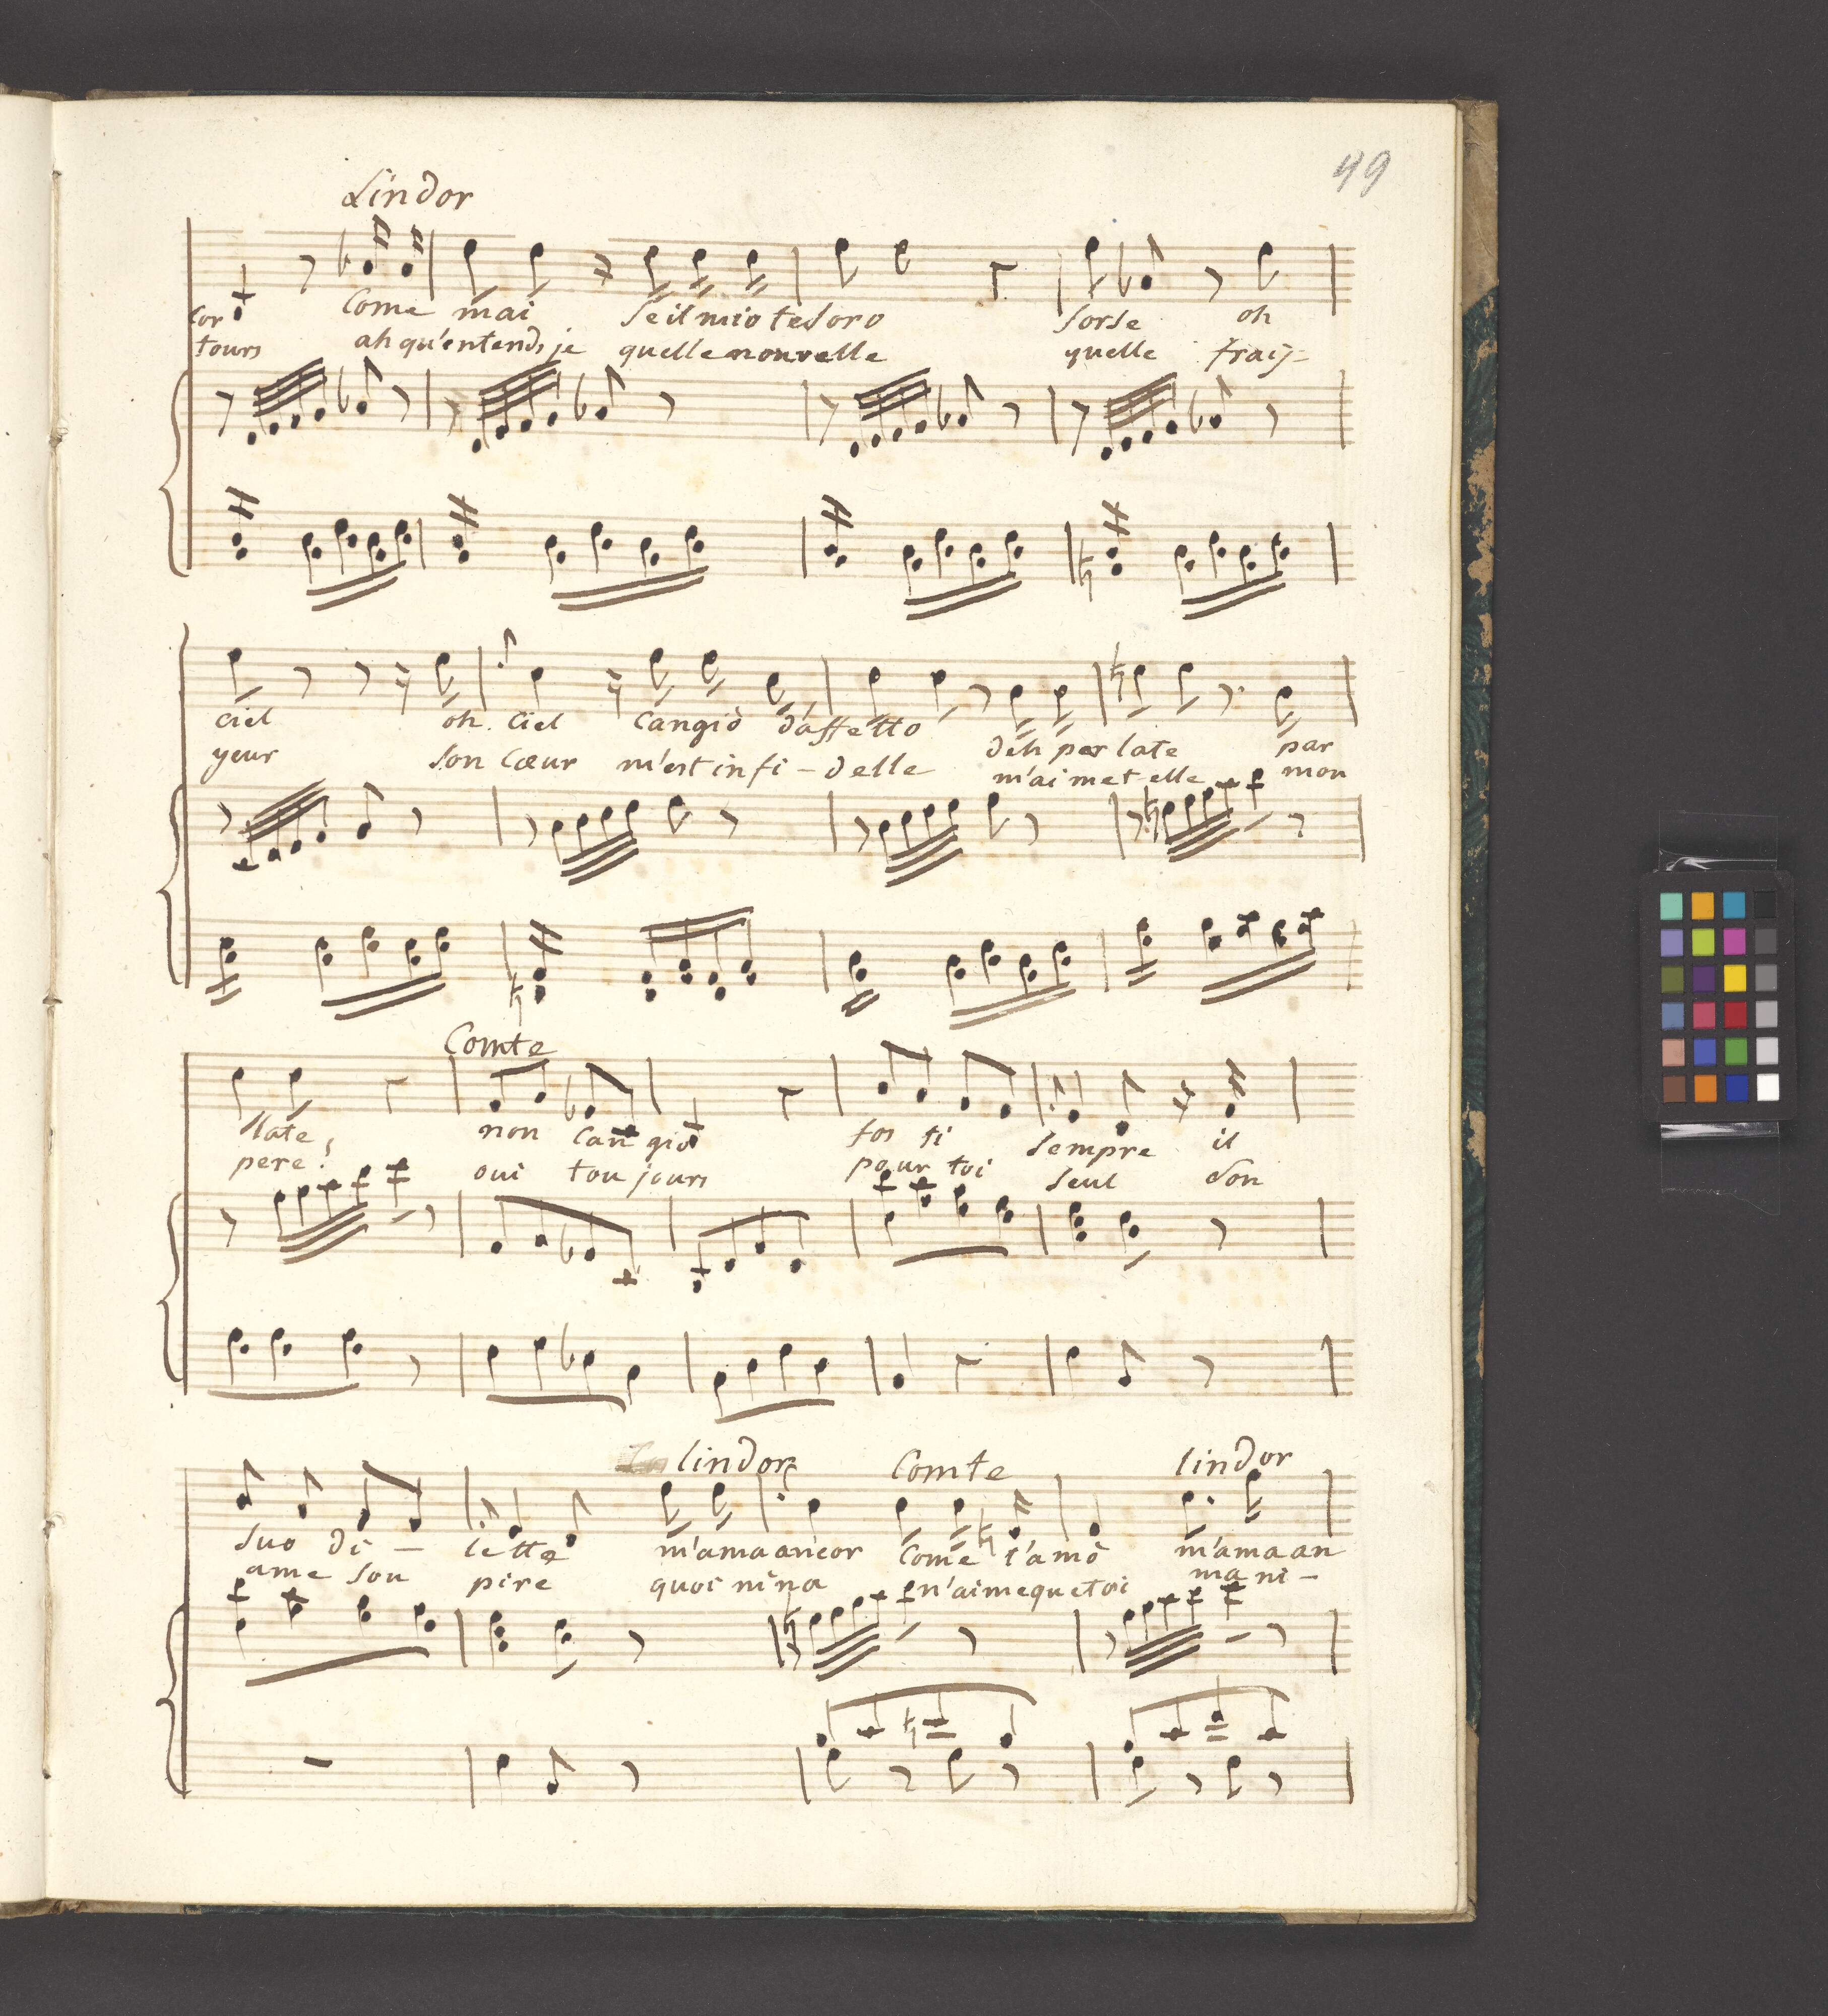 49
Lindor
cor come mai se il mio tesoro forse oh
tours ah qu'entends je quelle nouvelle quelle fray-
ciel oh ciel cangiò d'affetto deh parlate par
yeur son cœur m'est infi-delle m'aimet elle mon
Comte
late, non can giò fos ti sempre il
pere? oui tou jours pour toi seul son
lindor Comte lindor
suo di - lette m'ama ancor come t'amò m'ama an
ame sou pire quoi nina n'aime que toi ma ni-